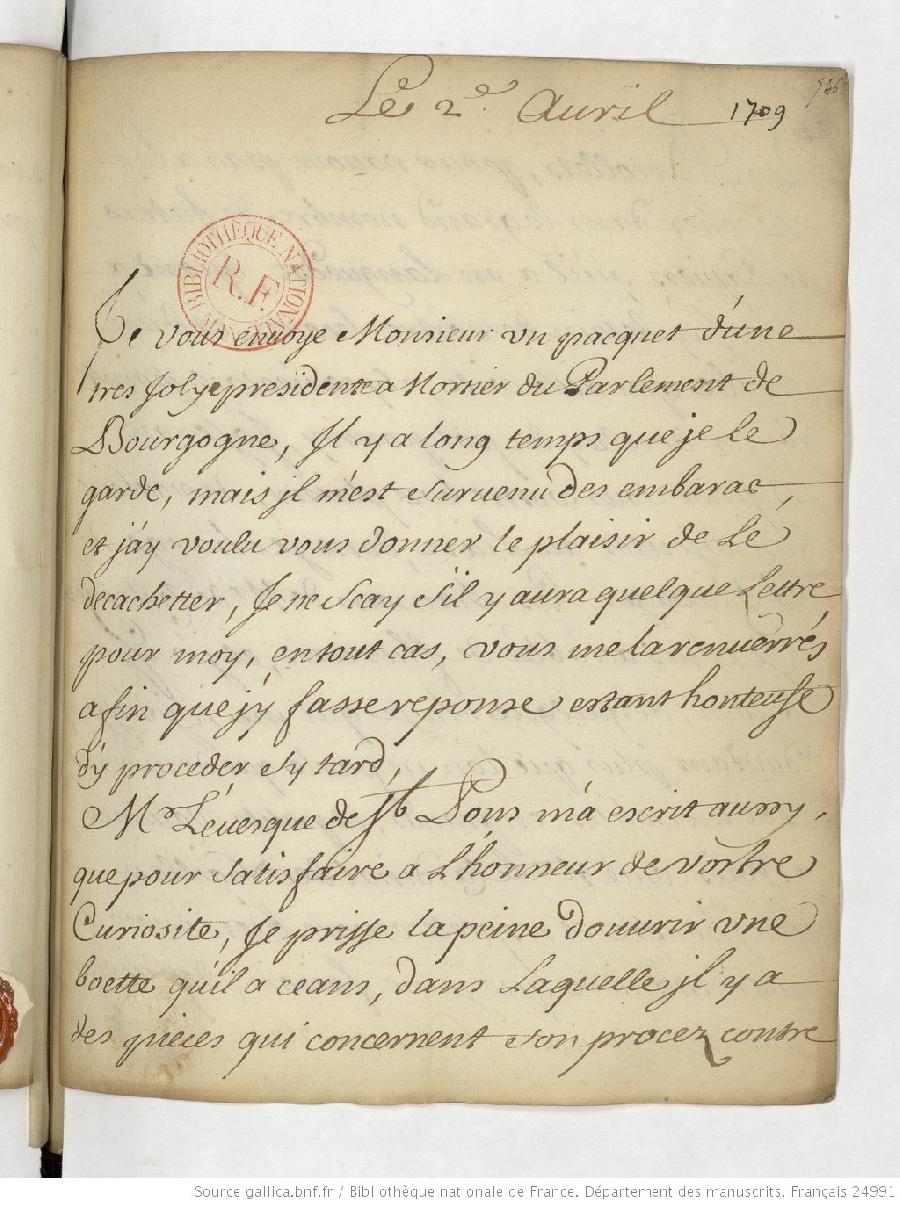 Le 2e. Auril 1709
BIBLIOTHÈQUE NATIONALE
R.F.
Je vous envoye Monsieur vn pacquet d'une
tres Jolye presidente a Mortier du Parlement de
Bourgogne, Jl y a long temps que je le
garde, mais jl m'est suruenu des embarac,
et j'ay voulu vous donner le plaisir de Lé
decachetter, Je ne scay s'il y aura quelque Lettre
pour moy, en tout cas, vous me la renuerrés
afin que j'y fasse reponse estant honteuse
d'y proceder sy tard,
Mr. L'éuesque de St Pons m'a escrit aussy,
que pour satisfaire a L'honneur de vostre
Curiosite, Je prisse la peine d'ouurir vne
boette qu'il a ceans, dans Laquelle jl y a
des pieces qui concernent son procez contre
Source gallica.bnf.fr / Bibliothèque nationale de France. Département des manuscrits. Français 24991